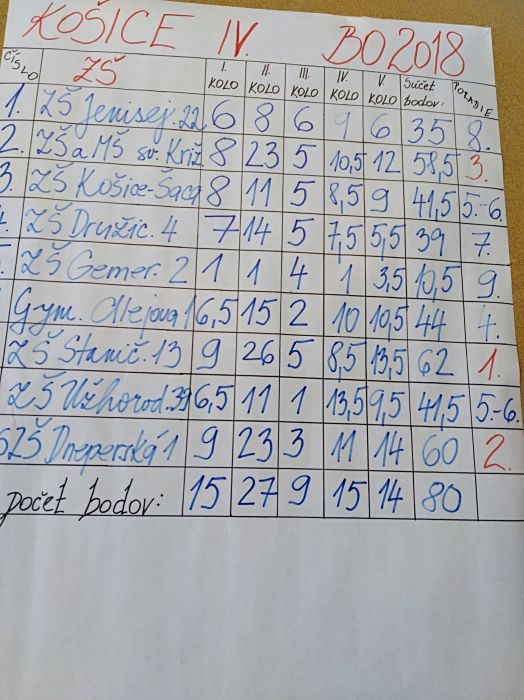 KOŠICE IV. BO2018
ČÍSLO ZŠ I. KOLO II. KOLO III. KOLO IV. KOLO V. KOLO Súčet bodov: PORADIE
1. ZŠ Jenisej. 22 6 8 6 9 6 35 8.
2. ZŠ a MŠ sv. Kríž 8 23 5 10,5 12 58,5 3.
3. ZŠ Košice-Šaca 8 11 5 8,5 9 41,5 5.-6.
ZŠ Družic. 4 7 14 5 7,5 5,5 39 7.
ZŠ Gemer. 2 1 1 4 1 3,5 10,5 9.
Gym. Alejova 1 6,5 15 2 10 10,5 44 4.
ZŠ Stanič. 13 9 26 5 8,5 13,5 62 1.
ZŠ Užhorod. 39 6,5 11 1 13,5 9,5 41,5 5.-6.
SZŠ Dneperská 1 9 23 3 11 14 60 2.
počet bodov: 15 27 9 15 14 80